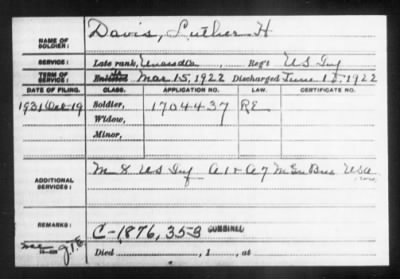 NAME OF SOLDIER: Davis, Luther H
SERVICE: Late rank, Reg't US Inf
TERM OF SERVICE: Enlisted Mar 15, 1922 Discharged June 15, 1922
DATE OF FILING. CLASS. APPLICATION NO. LAW. CERTIFICATE NO.
1931 Oct 19 Soldier, 1704437 RE
Widow,
Minor,
ADDITIONAL SERVICES: M 8 US Inf A 1 + A 7 M Gun Bn USA
REMARKS: C-1,876,353 COMBINED
Died , 1 , at